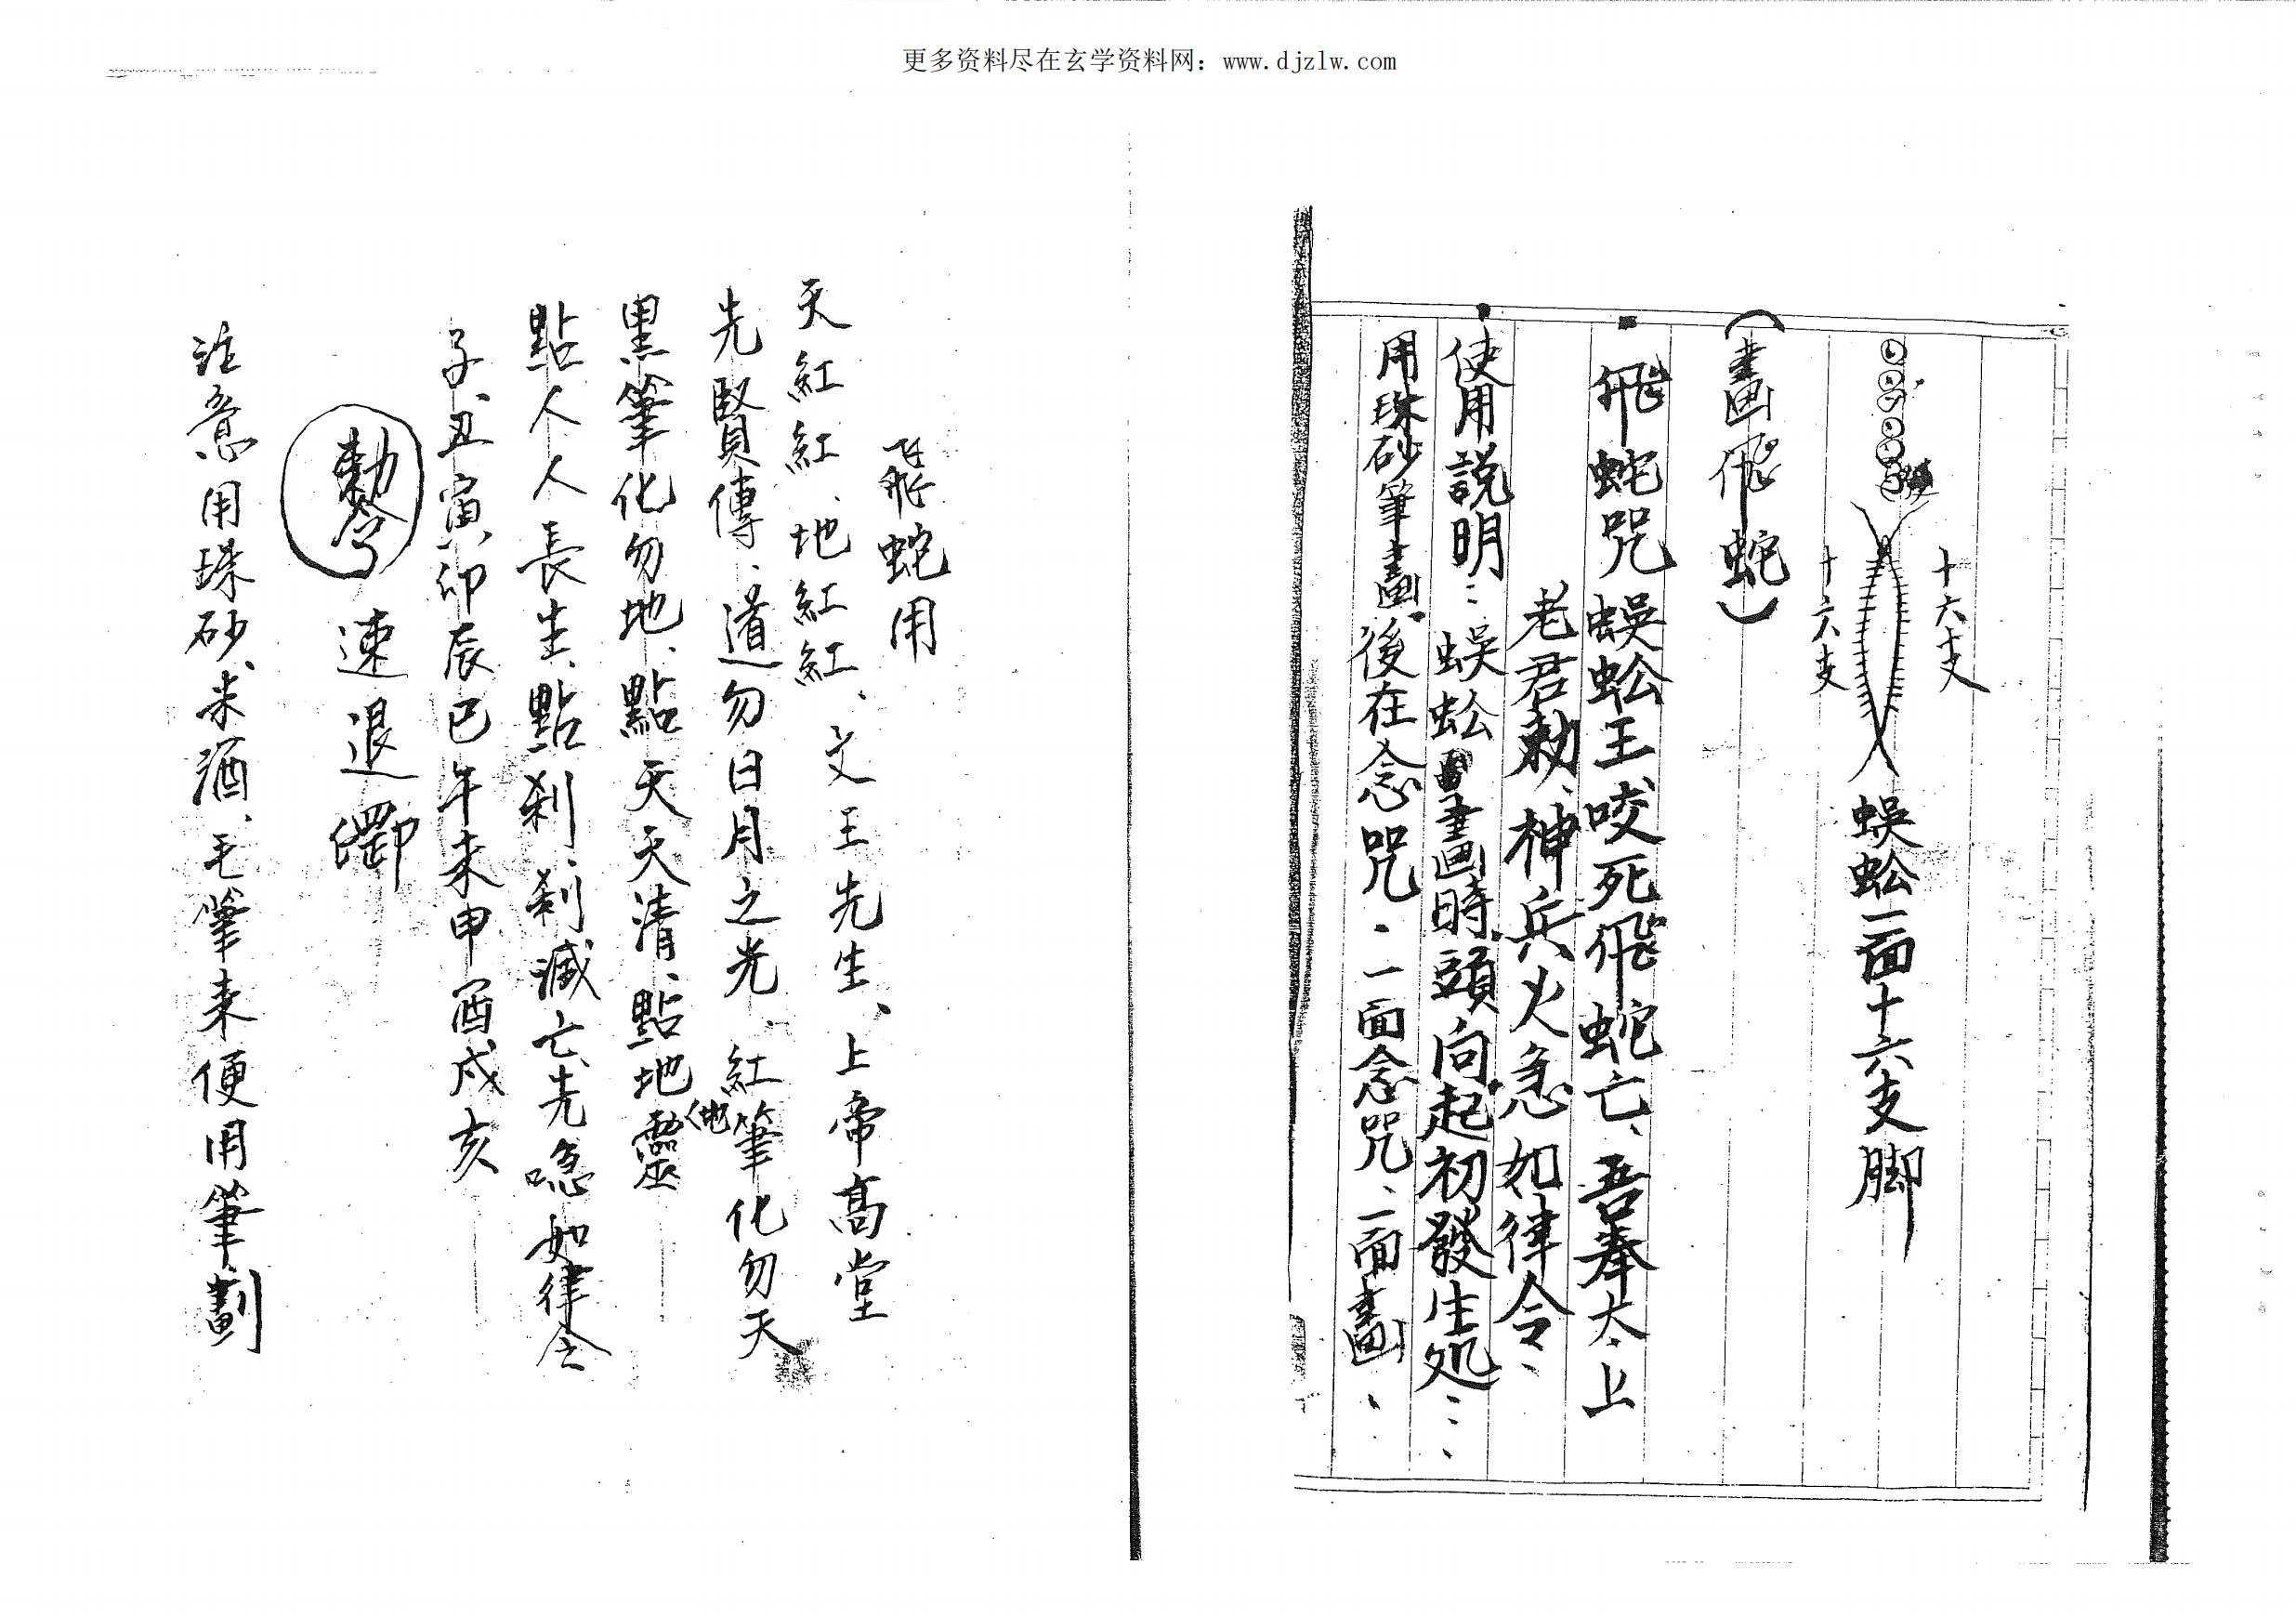 更多资料尽在玄学资料网：www.djzlw.com
十六支
十六支
蜈蚣一面十六支脚
（畫飛蛇）
飛蛇咒蜈蚣王咬死飛蛇亡、吾奉太上
老君勅、神兵火急如律令、
使用説明：蜈蚣畫時頭向起初發生処：、
用珠砂筆畫、後在念咒．一面念咒、一面畫、
飛蛇用
天紅紅、地紅紅、文王先生、上帝高堂
先賢傳、道勿日月之光、紅筆化勿天
黑筆化勿地、點天天清、點地地靈
點人人長生、點刹、刹滅亡、先隐如律令
子、丑、寅、卯辰巳午未申酉戍亥
勅令 速退
注意用珠砂、米酒、毛筆来便用筆劃